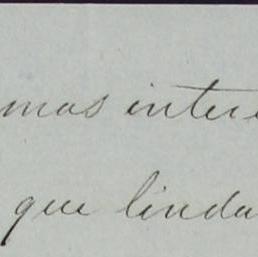 mas intere
que linda